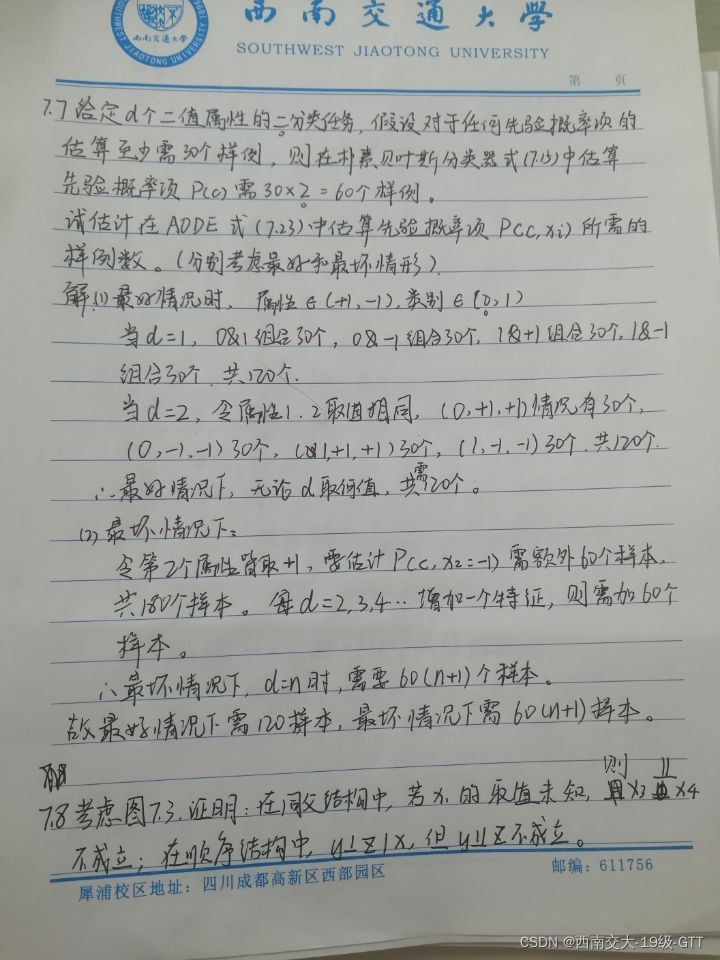 西南交通大学
SOUTHWEST JIAOTONG UNIVERSITY
第 页
7.7 给定d个二值属性的二分类任务,假设对于任何先验概率项的
估算至少需30个样例,则在朴素贝叶斯分类器式(7.15)中估算
先验概率项 P(c) 需 30×2=60个样例。
试估计在 AODE 式 (7.23) 中估算先验概率项 P(c,xi) 所需的
样例数。(分别考虑最好和最坏情形)
解:(1) 最好情况时, 属性∈(+1,-1),类别∈(0,1)
当 d=1, 0&1组合30个, 0&-1组合30个, 1&+1组合30个,1&-1
组合30个,共120个.
当d=2,令属性1、2取值相同, (0,+1,+1)情况有30个,
(0,-1,-1)30个, (1,+1,+1)30个, (1,-1,-1)30个.共120个.
∴最好情况下,无论d取何值,共需120个。
(2) 最坏情况下:
令第2个属性皆取+1,要估计P(c,x2=-1)需额外60个样本,
共180个样本。每d=2,3,4…增加一个特征,则需加60个
样本。
∴最坏情况下,d=n时,需要60(n+1)个样本。
故最好情况下需120样本,最坏情况下需60(n+1)样本。
7.8 考虑图7.3,证明:在同父结构中,若x1的取值未知,则x3⊥x4
不成立;在顺序结构中,y⊥z|x,但y⊥z不成立。
犀浦校区地址:四川成都高新区西部园区
邮编:611756
CSDN @西南交大-19级-GTT